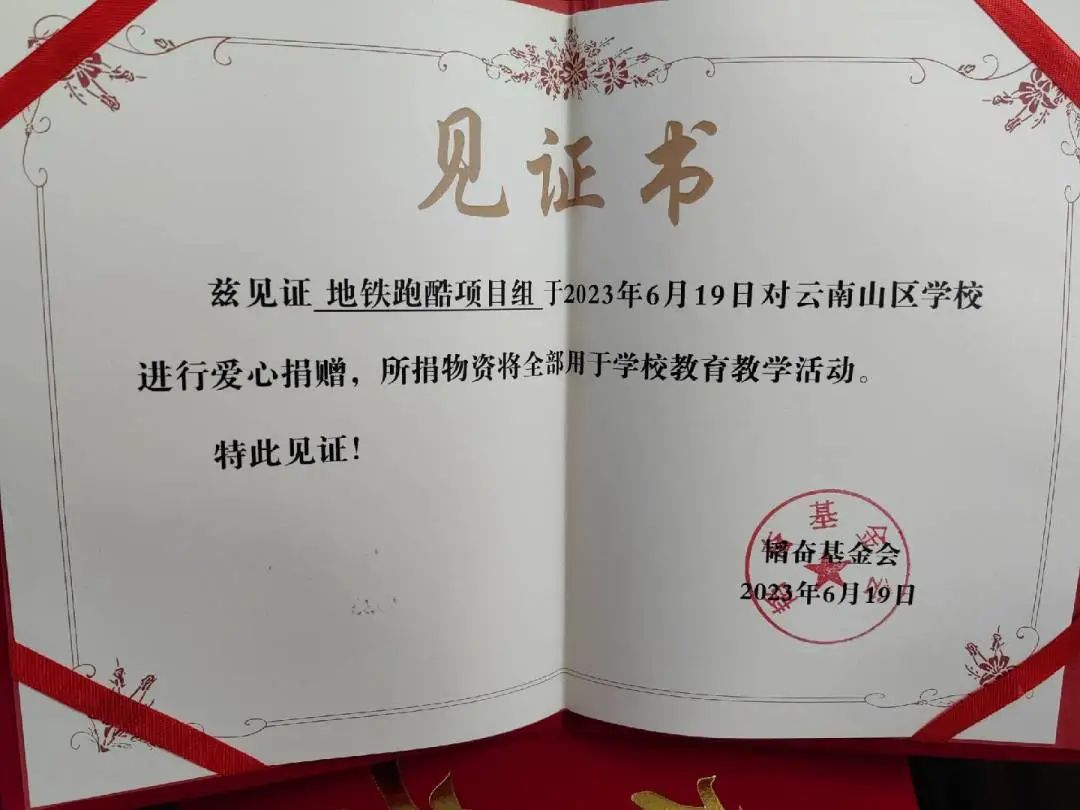 见证书
兹见证 地铁跑酷项目组 于2023年6月19日对云南山区学校
进行爱心捐赠，所捐物资将全部用于学校教育教学活动。
特此见证！
韬奋基金会
2023年6月19日
韬奋基金会